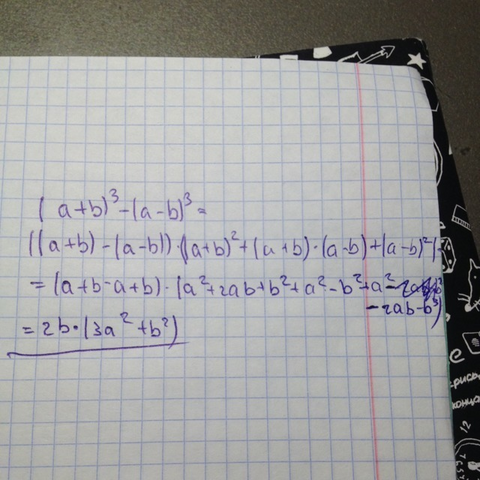 (a+b)³-(a-b)³=
((a+b)-(a-b))·((a+b)²+(a+b)·(a-b)+(a-b)²)=
=(a+b-a+b)·(a²+2ab+b²+a²-b²+a²
-2ab-b²)
=2b·(3a²+b²)
е
-рись
конца
12